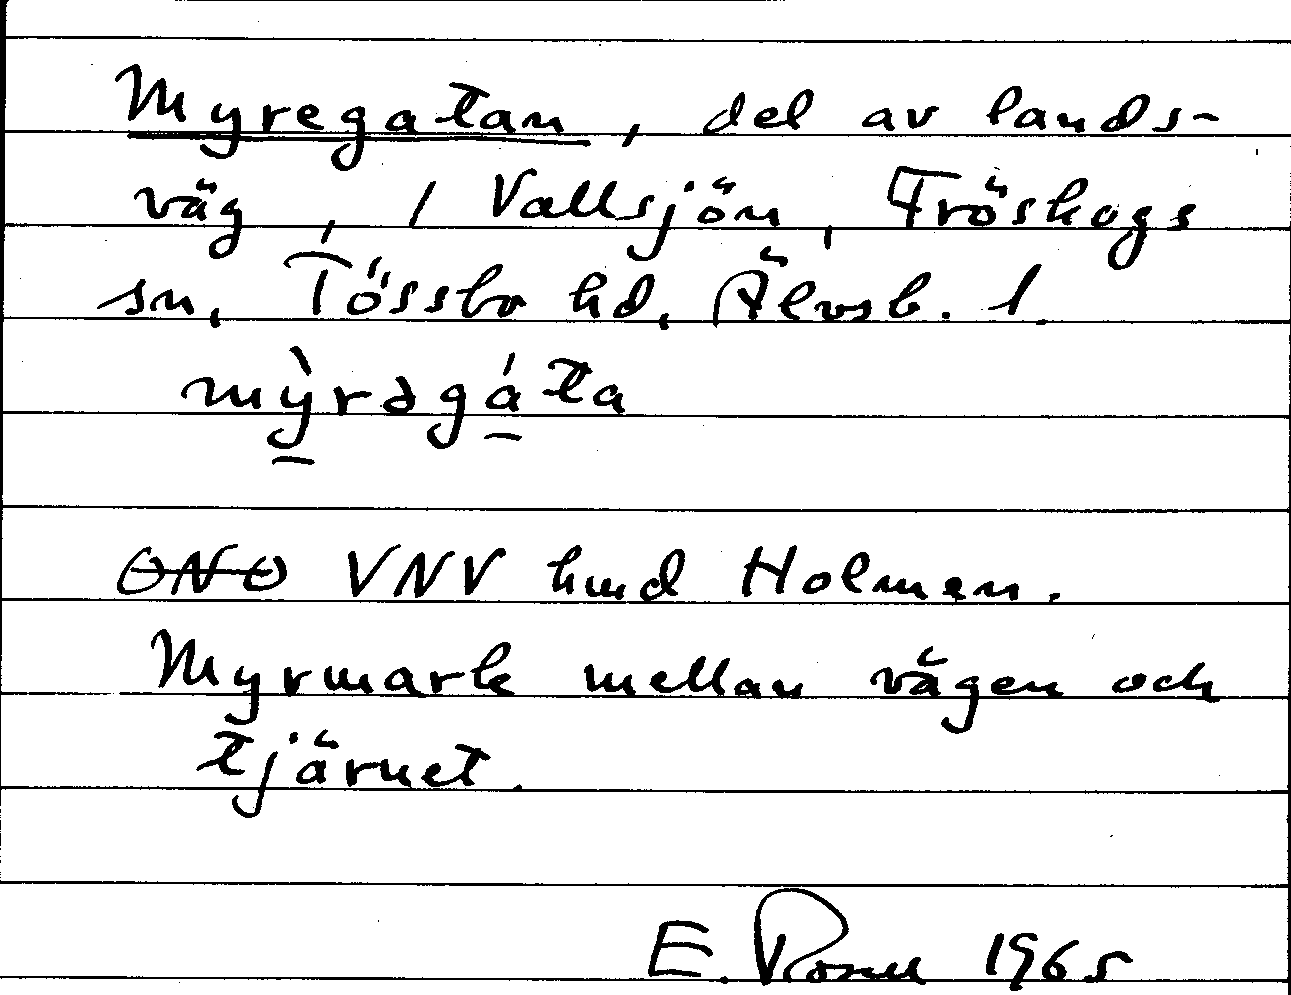 Myregatan, del av lands-
väg, / Vallsjön, Fröskogs
sn, Tössbo hd, Älvsb. l.
mỳrəgáta
ONO VNV hmd Holmen.
Myrmark mellan vägen och
tjärnet.
E. Rosell 1965